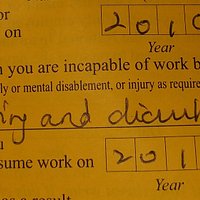 or
on 2010
Year
n you are incapable of work b
ly or mental disablement, or injury as require
and
u
sume work on 201
Year
as a result